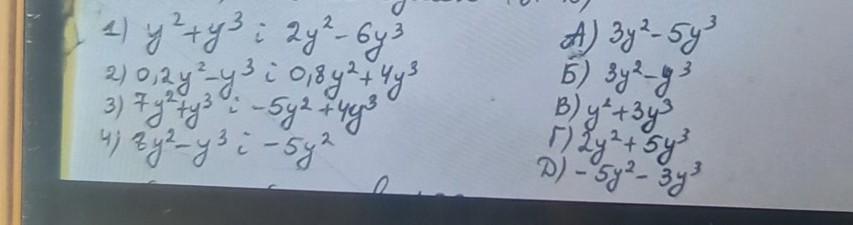 1) y²+y³ і 2y²-6y³
2) 0,2y²-y³ і 0,8y²+4y³
3) 7y²+y³ і -5y²+4y³
4) 8y²-y³ і -5y²
А) 3y²-5y³
Б) 3y²-y³
В) y²+3y³
Г) 2y²+5y³
Д) -5y²-3y³